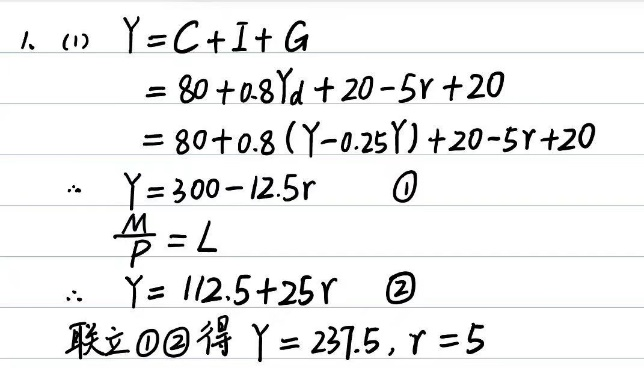 1. (1) Y=C+I+G
=80+0.8Yd+20-5r+20
=80+0.8(Y-0.25Y)+20-5r+20
∴ Y=300-12.5r ①
M/P=L
∴ Y=112.5+25r ②
联立①②得 Y=237.5, r=5